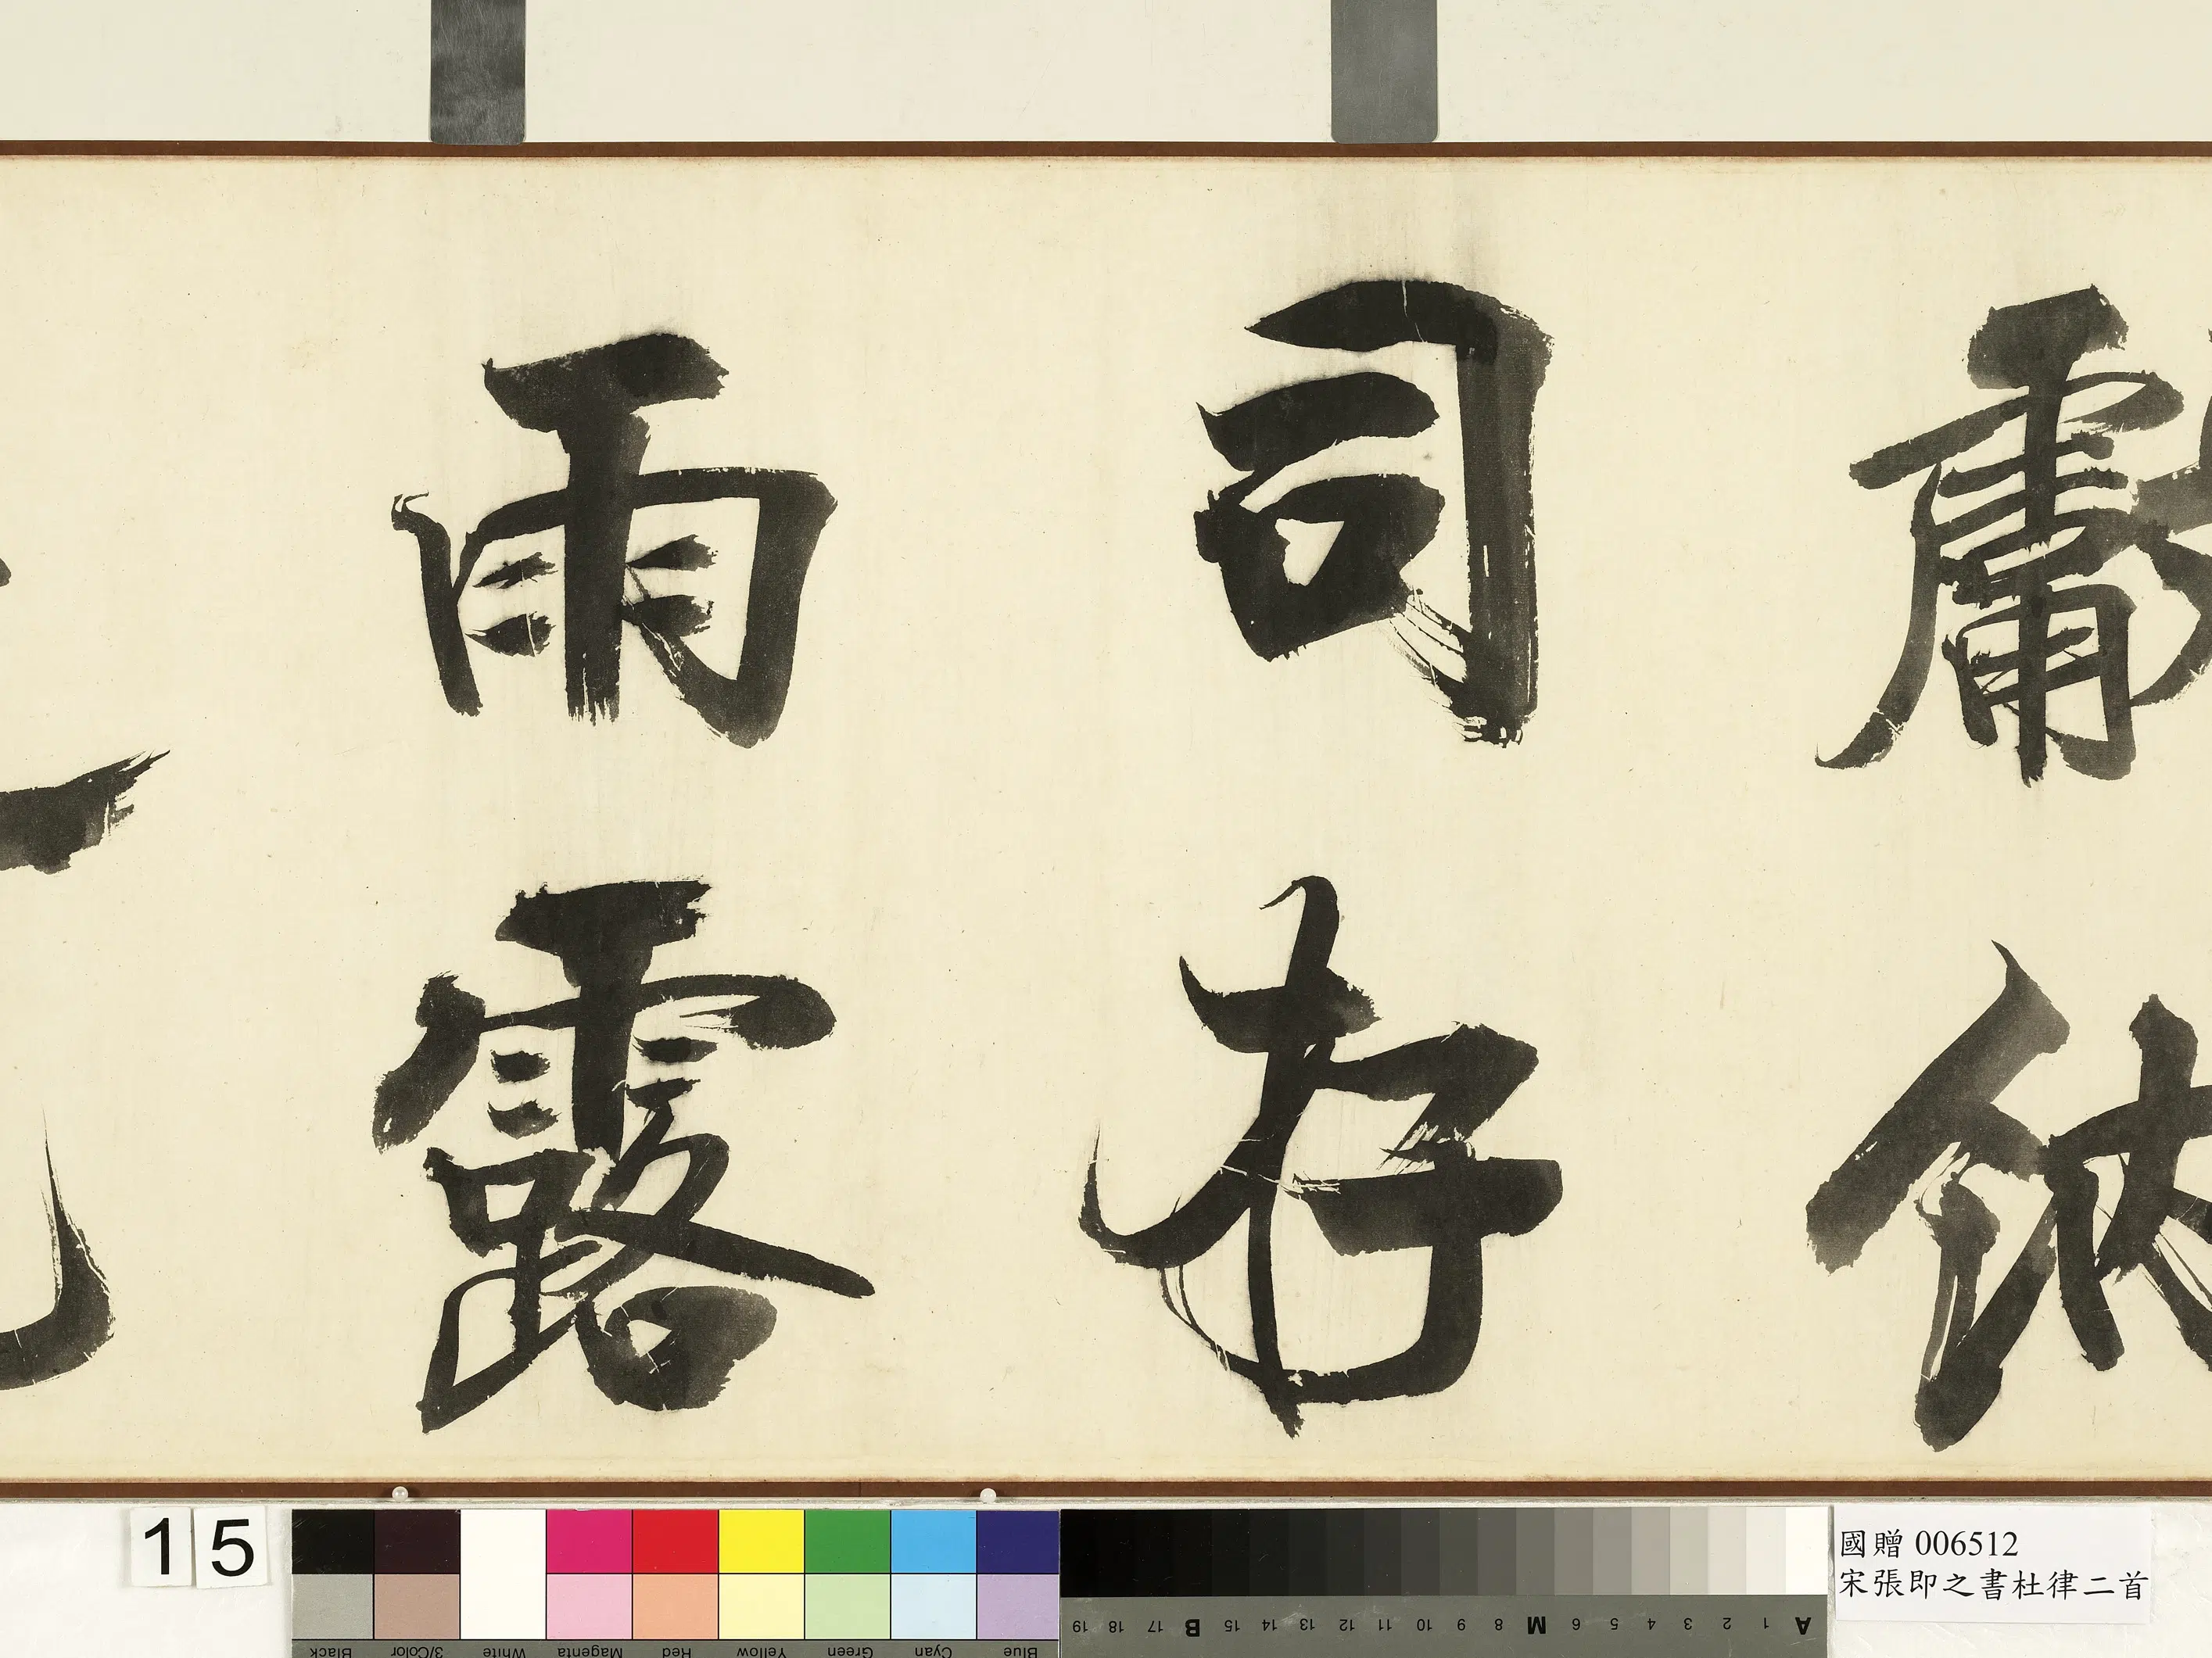 獻納
司存
雨露
15
Blue Cyan Green Yellow Red Magenta White 3/Color Black
A 1 2 3 4 5 6 M 8 9 10 11 12 13 14 15 B 17 18 19
國贈 006512
宋張即之書杜律二首